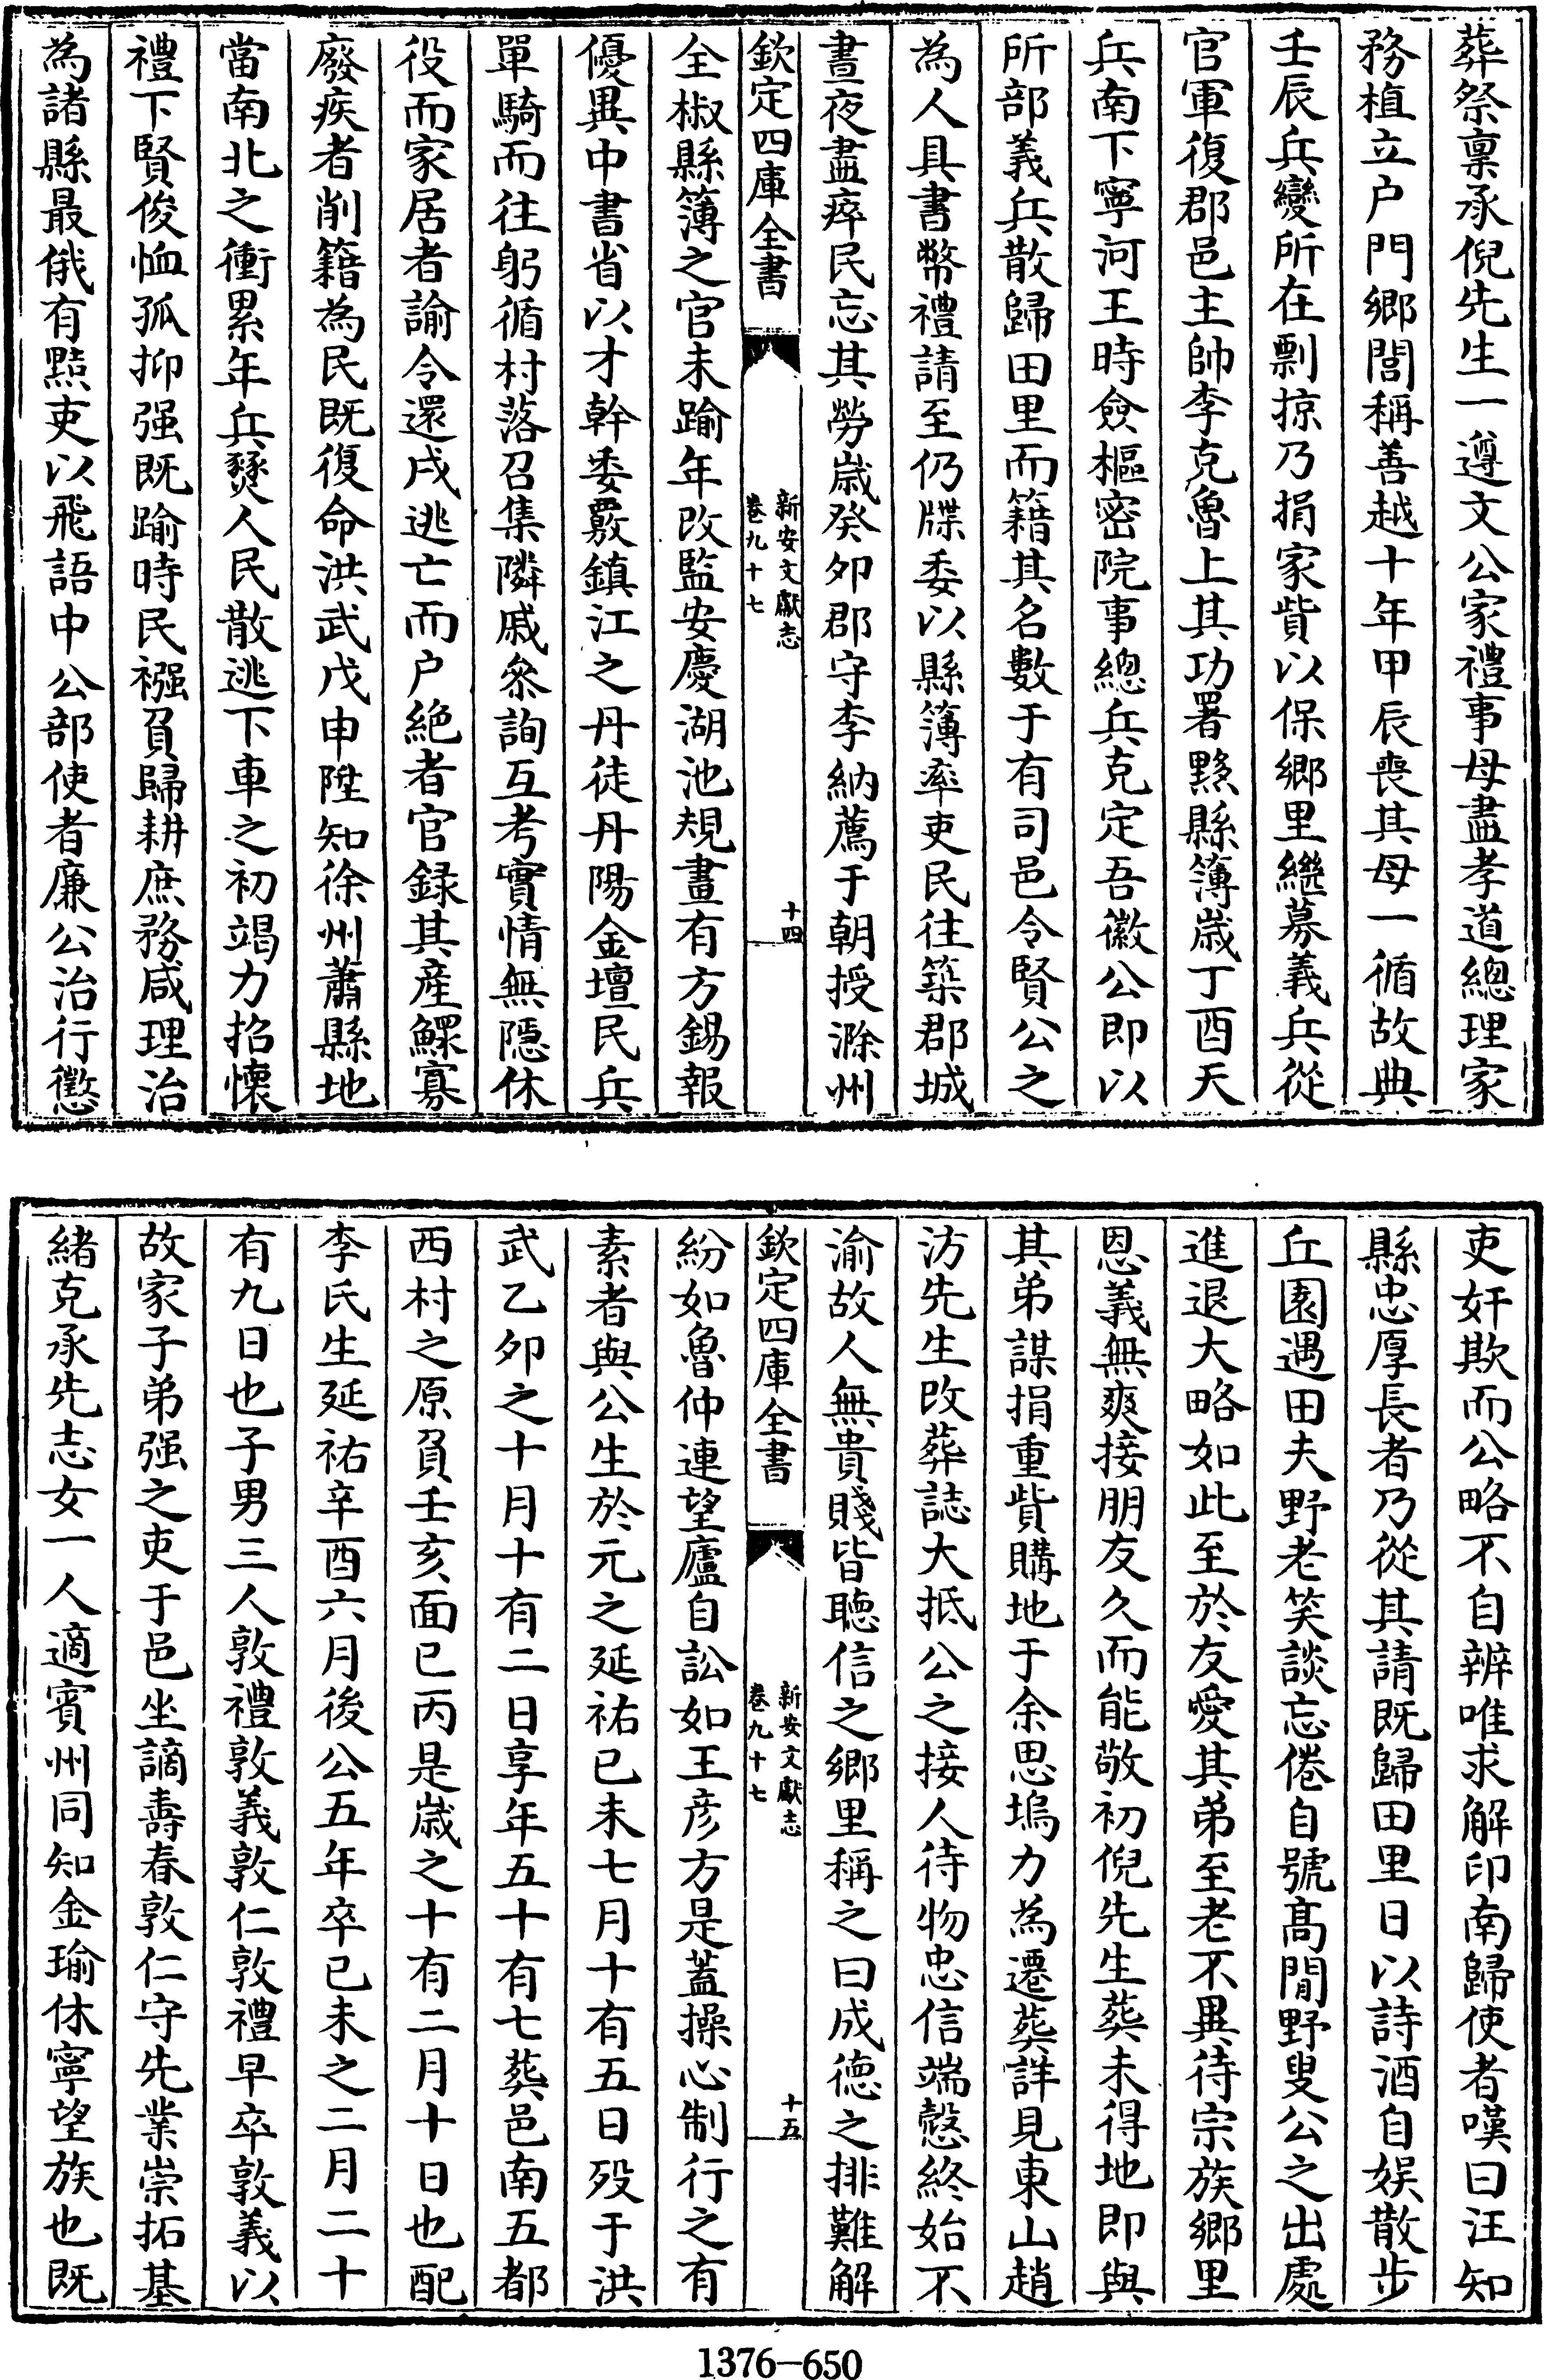 葬祭禀承倪先生一遵文公家禮事母盡孝道總理家
務植立户門鄉閭稱善越十年甲辰喪其母一循故典
壬辰兵變所在剽掠乃捐家貲以保鄉里繼募義兵從
官軍復郡邑主帥李克魯上其功署黟縣簿歲丁酉天
兵南下寧河王時僉樞密院事總兵克定吾徽公即以
所部義兵散歸田里而籍其名數于有司邑令賢公之
為人具書幣禮請至仍牒委以縣簿率吏民往築郡城
晝夜盡瘁民忘其勞歲癸卯郡守李納薦于朝授滁州
欽定四庫全書
新安文獻志
卷九十七
十四
全椒縣簿之官未踰年改監安慶湖池規畫有方錫報
優異中書省以才幹委覈鎮江之丹徒丹陽金壇民兵
單騎而往躬循村落召集隣戚叅詢互考實情無隱休
役而家居者諭令還戍逃亡而户絶者官録其産鰥寡
廢疾者削籍為民既復命洪武戊申陞知徐州蕭縣地
當南北之衝累年兵燹人民散逃下車之初竭力招懷
禮下賢俊恤孤抑强既踰時民襁負歸耕庶務咸理治
為諸縣最俄有黠吏以飛語中公部使者廉公治行懲
吏奸欺而公略不自辨唯求解印南歸使者嘆曰汪知
縣忠厚長者乃從其請既歸田里日以詩酒自娱散步
丘園遇田夫野老笑談忘倦自號髙閒野叟公之出處
進退大略如此至於友愛其弟至老不異待宗族鄉里
恩義無爽接朋友久而能敬初倪先生葬未得地即與
其弟謀捐重貲購地于余思塢力為遷葬詳見東山趙
汸先生改葬誌大抵公之接人待物忠信端慤終始不
渝故人無貴賤皆聽信之鄉里稱之曰成德之排難解
欽定四庫全書
新安文獻志
卷九十七
十五
紛如魯仲連望廬自訟如王彦方是蓋操心制行之有
素者與公生於元之延祐已未七月十有五日殁于洪
武乙卯之十月十有二日享年五十有七葬邑南五都
西村之原負壬亥面已丙是歲之十有二月十日也配
李氏生延祐辛酉六月後公五年卒已未之二月二十
有九日也子男三人敦禮敦義敦仁敦禮早卒敦義以
故家子弟强之吏于邑坐謫夀春敦仁守先業崇拓基
緒克承先志女一人適賓州同知金瑜休寧望族也既
1376—650